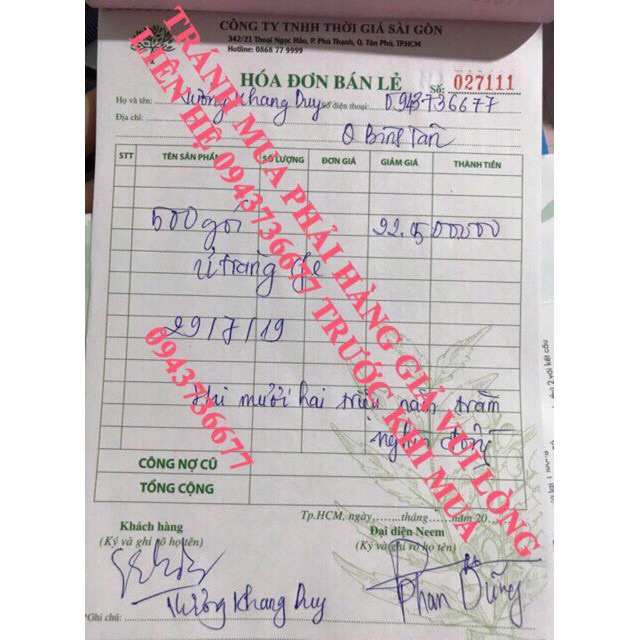 CÔNG TY TNHH THỜI GIÁ SÀI GÒN
342/21 Thoại Ngọc Hầu, P. Phú Thạnh, Q. Tân Phú, TP.HCM
Hotline: 0868 77 9999
HÓA ĐƠN BÁN LẺ Số: 027111
Họ và tên: Vương Khang Duy Số điện thoại: 0943736677
Địa chỉ: Q Bình Tân
STT TÊN SẢN PHẨM SỐ LƯỢNG ĐƠN GIÁ GIẢM GIÁ THÀNH TIỀN
500 gói 22.500000
ủ trắng
29/7/19
Hai mười hai triệu năm trăm
nghìn đồng
CÔNG NỢ CŨ
TỔNG CỘNG
Tp.HCM, ngày........tháng........năm 20....
Khách hàng Đại diện Neem
(Ký và ghi rõ họ tên) (Ký và ghi rõ họ tên)
Vương Khang Duy Phan Dũng
*Ghi chú:
TRÁNH MUA PHẢI HÀNG GIẢ VUI LÒNG
LIÊN HỆ 0943736677 TRƯỚC KHI MUA
0943736677